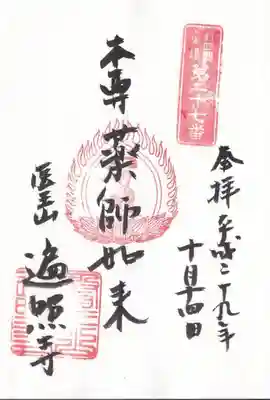 第三十七番
奉拝 平成二十九年
十月十四日
本尊 薬師如来
医王山
遍照寺